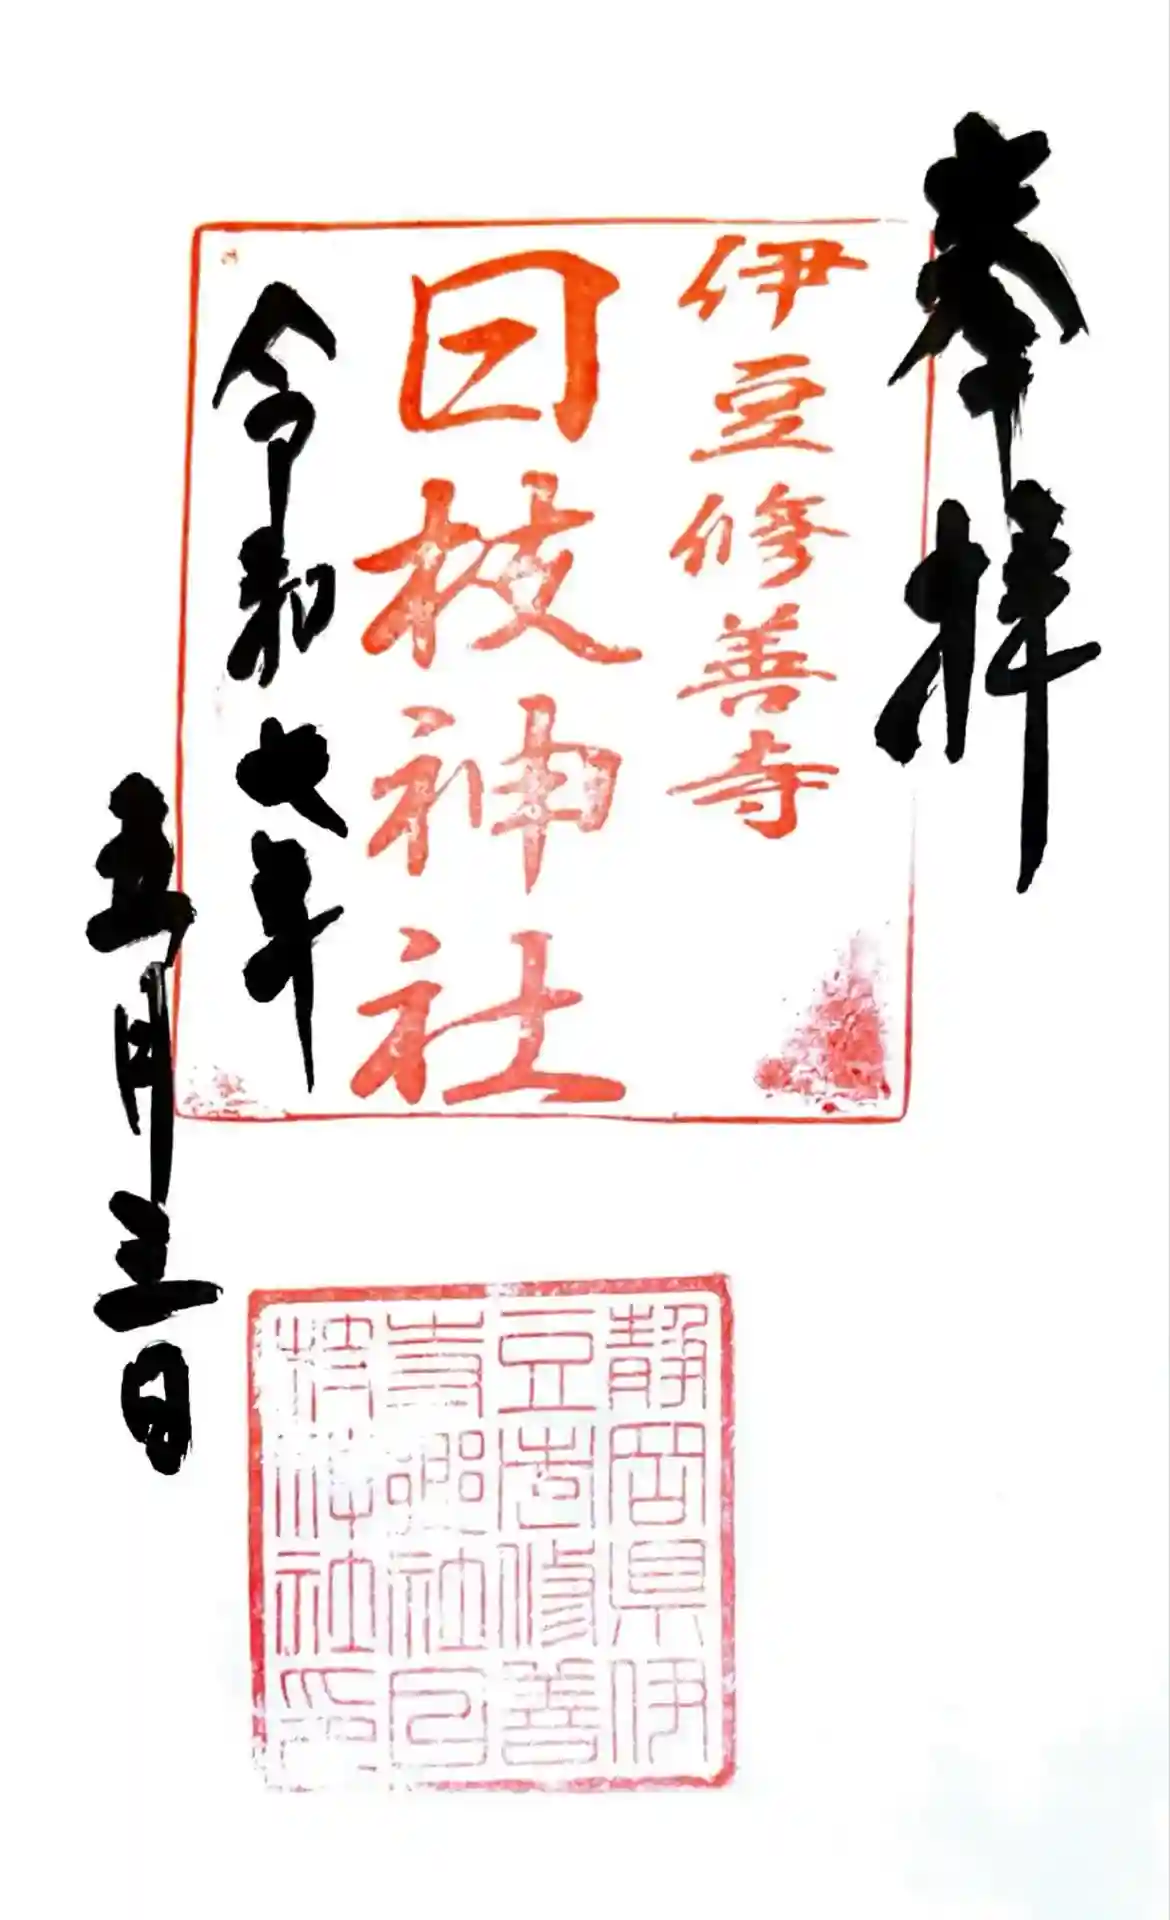 奉拝
伊豆修善寺
日枝神社
令和七年
五月三日
静岡県伊
豆
修善
寺
社日
枝神社印